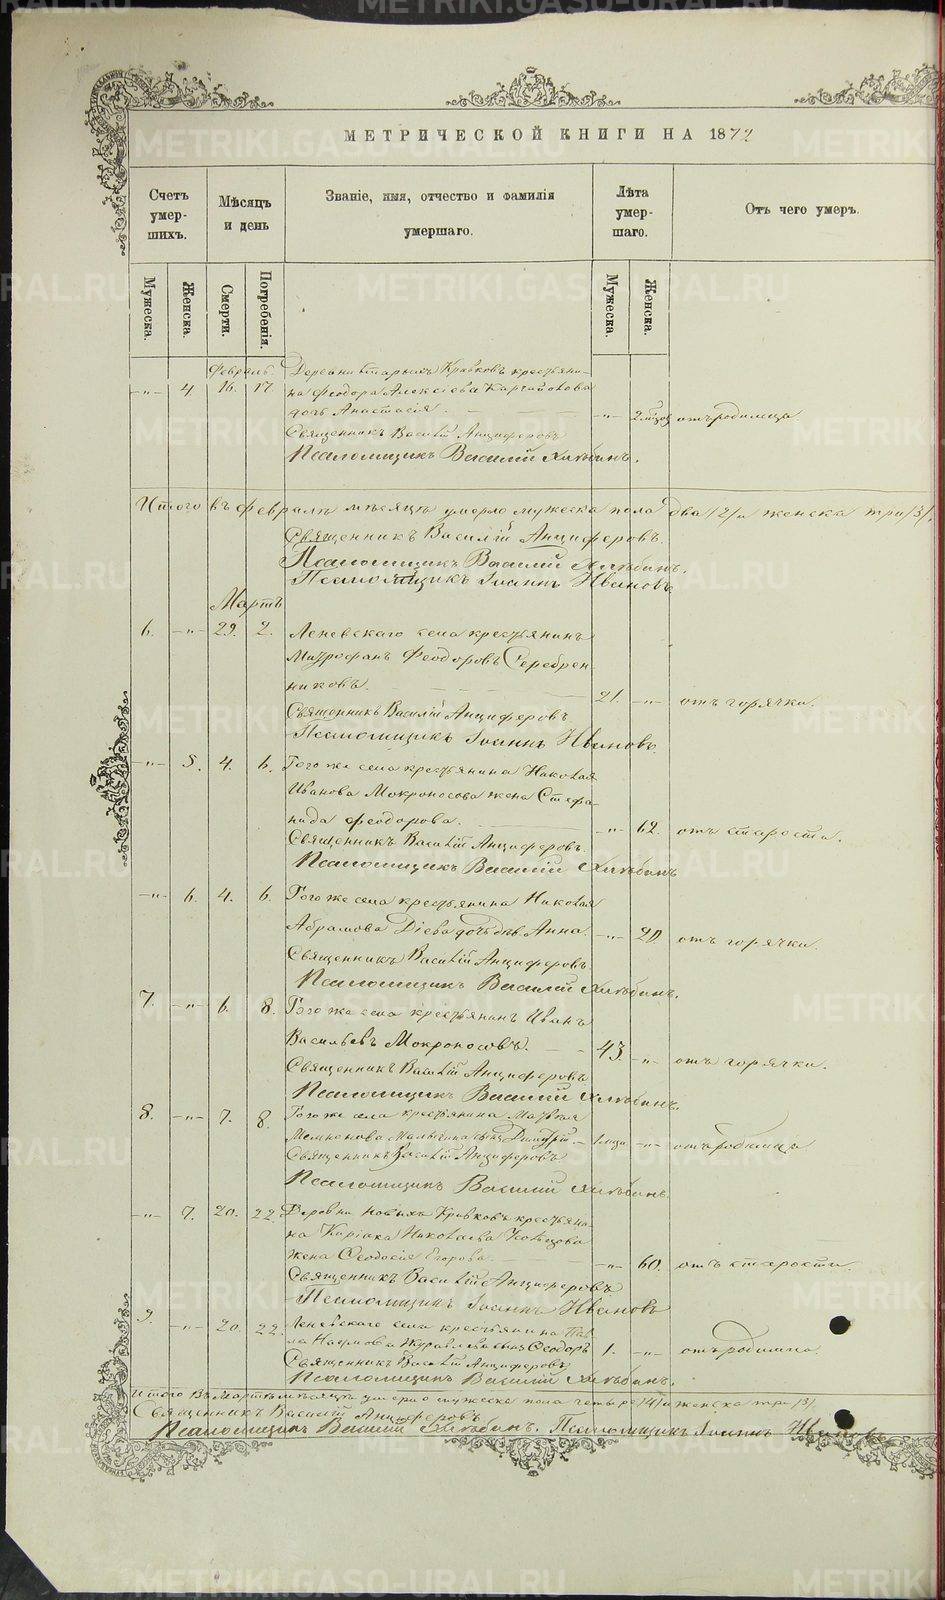 МЕТРИЧЕСКОЙ КНИГИ НА 1872
Счетъ умер- шихъ.
Мѣсяцъ и день
Званіе, имя, отчество и фамилія умершаго.
Лѣта умер- шаго.
Отъ чего умеръ.
Мужеска. Женска. Смерти. Погребенія. Мужеска. Женска.
Февраль
Деревни Старыхъ Кривковъ крестьяни-
-„- 4. 16. 17. на Феодора Алексіева
дочь Анастасія. -„- 2 отъ родимца
Священникъ Василій Анциферовъ
Псаломщикъ Василій Хлѣбинъ.
Итого въ Февралѣ мѣсяцѣ умерло мужеска пола два /2/ и женска три /3/.
Священникъ Василій Анциферовъ.
Псаломщикъ Василій Хлѣбинъ.
Псаломщикъ Іоаннъ Ивановъ
Мартъ
6. -„- 29. 2. Леневскаго села крестьянинъ
Митрофанъ Феодоровъ Серебрен
никовъ. 21. -„- отъ горячки.
Священникъ Василій Анциферовъ
Псаломщикъ Іоаннъ Ивановъ.
-„- 5. 4. 6. Того же села крестьянина Николая
Иванова Мокроносова жена Стефа-
нида Феодорова. -„- 62. отъ старости.
Священникъ Василій Анциферовъ.
Псаломщикъ Василій Хлѣбинъ
-„- 6. 4. 6. Того же села крестьянина Николая
Абрамова Діева дочь дѣв. Анна. -„- 20 отъ горячки.
Священникъ Василій Анциферовъ
Псаломщикъ Василій Хлѣбинъ.
7. -„- 6. 8. Того же села крестьянинъ Иванъ
Васильевъ Мокроносовъ. 43. -„- отъ горячки.
Священникъ Василій Анциферовъ
Псаломщикъ Василій Хлѣбинъ.
8. -„- 7. 8. Того же села крестьянина Матвея
сынъ Димитрій -„- отъ родимца
Священникъ Василій Анциферовъ
Псаломщикъ Василій Хлѣбинъ.
-„- 7. 20. 22. Деревни Новыхъ Кривковъ крестьяни-
на Николаева
жена Феодосія Егорова. -„- 60. отъ старости.
Священникъ Василій Анциферовъ
Псаломщикъ Іоаннъ Ивановъ
9. -„- 20. 22. Леневскаго села крестьянина Пав
ла Наумова Журавлева сынъ Феодоръ 1. -„- отъ родимца.
Священникъ Василій Анциферовъ
Псаломщикъ Василій Хлѣбинъ.
Итого въ Мартѣ мѣсяцѣ умерло мужеска пола четыре /4/ и женска три /3/.
Священникъ Василій Анциферовъ
Псаломщикъ Василій Хлѣбинъ. Псаломщикъ Іоаннъ Ивановъ
METRIKI.GASO-URAL.RU